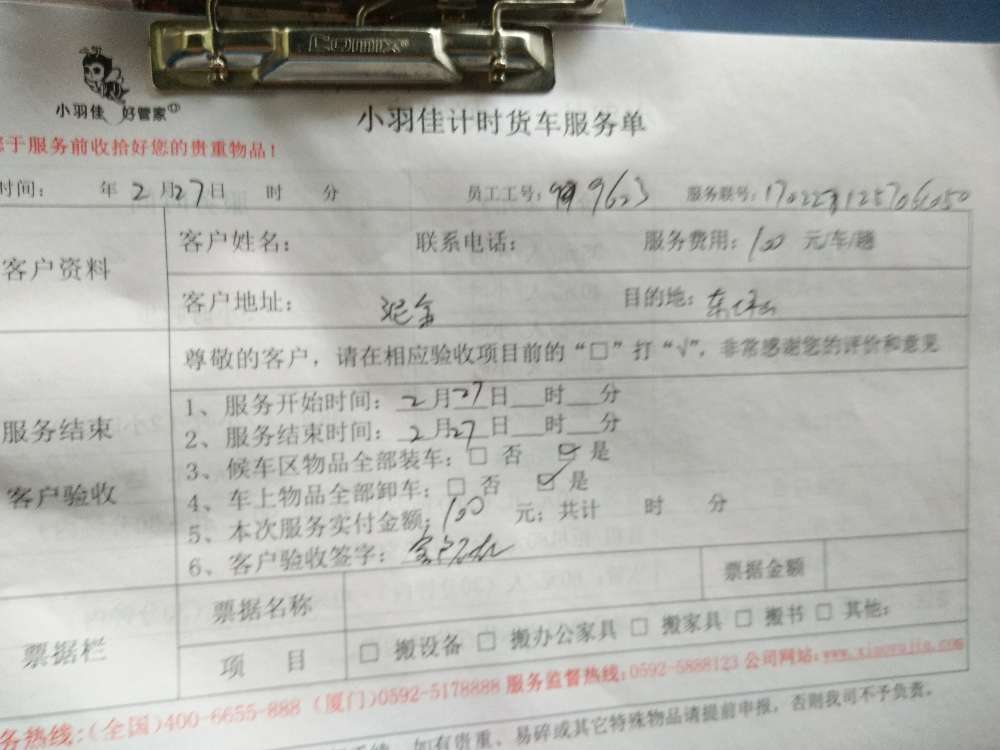 Comix
小羽佳 好管家
小羽佳计时货车服务单
于服务前收拾好您的贵重物品！
时间： 年 2 月 27 日 时 分 员工工号： 服务联号：
客户资料
客户姓名： 联系电话： 服务费用：100 元/车/趟
客户地址： 泥金 目的地：
尊敬的客户，请在相应验收项目前的“□”打“√”，非常感谢您的评价和意见
服务结束
客户验收
1、服务开始时间： 2 月 27 日 时 分
2、服务结束时间： 2 月 27 日 时 分
3、候车区物品全部装车：□ 否 ☑ 是
4、车上物品全部卸车：□ 否 ☑ 是
5、本次服务实付金额：100 元；共计 时 分
6、客户验收签字：
票据栏
票据名称 票据金额
项 目 □ 搬设备 □ 搬办公家具 □ 搬家具 □ 搬书 □ 其他：
务热线：(全国)400-6655-888 (厦门)0592-5178888 服务监督热线：0592-5888123 公司网站：www.xiaoyujia.com
如有贵重、易碎或其它特殊物品请提前申报，否则我司不予负责。